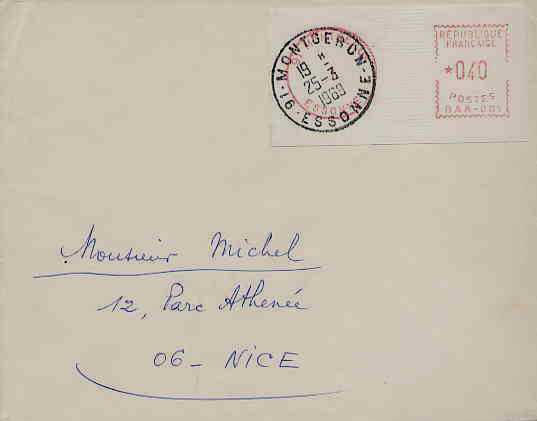 MONTGERON-E
19 H
25-3
1969
91 ESSONNE
ESSONNE
RÉPUBLIQUE
FRANCAISE
*040
POSTES
BAA-001
Monsieur Michel
12, Parc Athenée
06- NICE